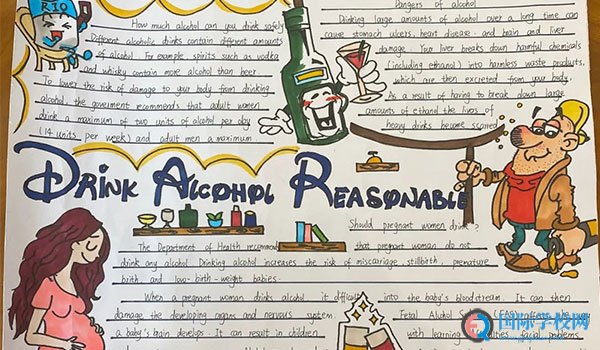 RIO
How much alcohol can you drink safely
Different alcoholic drinks contain different amounts
of alcohol. For example spirits such as vodka
and whisky contain more alcohol than beer.
To lower the risk of damage to your body from drinking
alcohol, the government recommends that adult women
drink a maximum of two units of alcohol per day
(14 units per week) and adult men a maximum
Dangers of alcohol
Drinking large amounts of alcohol over a long time can
cause stomach ulcers, heart disease and brain and liver
damage. Your liver breaks down harmful chemicals
(including ethanol) into harmless waste products,
which are then excreted from your body.
As a result of having to break down large
amounts of ethanol the livers of
heavy drinks become scarred
DRINK ALCOHOL REASONABLE
Should pregnant women drink?
The Department of Health recommend that pregnant woman do not
drink any alcohol Drinking alcohol increases the risk of miscarriage, stillbirth, premature
birth and low-birth-weight babies.
When a pregnant woman drinks alcohol it difficult into the baby's bloodstream. It can then
damage the developing organs and nervous system. Fetal Alcohol (FAS) affects the way
a baby's brain develops. It can result in children with learning facial problems
国际学校网